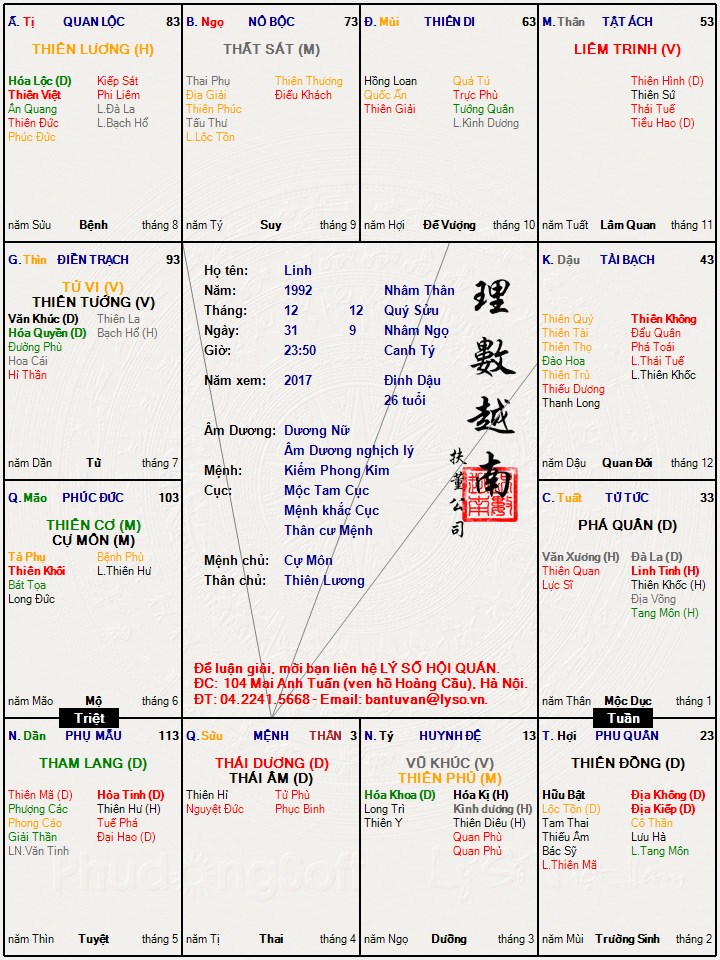 Ấ. Tị QUAN LỘC 83
THIÊN LƯƠNG (H)
Hóa Lộc (D) Kiếp Sát
Thiên Việt Phi Liêm
Ân Quang L.Đà La
Thiên Đức L.Bạch Hổ
Phúc Đức
năm Sửu Bệnh tháng 8
B. Ngọ NÔ BỘC 73
THẤT SÁT (M)
Thai Phụ Thiên Thương
Địa Giải Điếu Khách
Thiên Phúc
Tấu Thư
L.Lộc Tồn
năm Tý Suy tháng 9
Đ. Mùi THIÊN DI 63
Hồng Loan Quả Tú
Quốc Ấn Trực Phù
Thiên Giải Tướng Quân
L.Kình Dương
năm Hợi Đế Vượng tháng 10
M. Thân TẬT ÁCH 53
LIÊM TRINH (V)
Thiên Hình (D)
Thiên Sứ
Thái Tuế
Tiểu Hao (D)
năm Tuất Lâm Quan tháng 11
G. Thìn ĐIỀN TRẠCH 93
TỬ VI (V)
THIÊN TƯỚNG (V)
Văn Khúc (D) Thiên La
Hóa Quyền (D) Bạch Hổ (H)
Đường Phù
Hoa Cái
Hỉ Thần
năm Dần Tử tháng 7
Họ tên: Linh
Năm: 1992 Nhâm Thân
Tháng: 12 12 Quý Sửu
Ngày: 31 9 Nhâm Ngọ
Giờ: 23:50 Canh Tý
Năm xem: 2017 Đinh Dậu
26 tuổi
Âm Dương: Dương Nữ
Âm Dương nghịch lý
Mệnh: Kiếm Phong Kim
Cục: Mộc Tam Cục
Mệnh khắc Cục
Thân cư Mệnh
Mệnh chủ: Cự Môn
Thân chủ: Thiên Lương
理數越南
扶董公司
Để luận giải, mời bạn liên hệ LÝ SỐ HỘI QUÁN.
ĐC: 104 Mai Anh Tuấn (ven hồ Hoàng Cầu), Hà Nội.
ĐT: 04.2241.5668 - Email: bantuvan@lyso.vn.
K. Dậu TÀI BẠCH 43
Thiên Quý Thiên Không
Thiên Tài Đẩu Quân
Thiên Thọ Phá Toái
Đào Hoa L.Thái Tuế
Thiên Trù L.Thiên Khốc
Thiếu Dương
Thanh Long
năm Dậu Quan Đới tháng 12
Q. Mão PHÚC ĐỨC 103
THIÊN CƠ (M)
CỰ MÔN (M)
Tả Phụ Bệnh Phù
Thiên Khôi L.Thiên Hư
Bát Tọa
Long Đức
năm Mão Mộ tháng 6
C. Tuất TỬ TỨC 33
PHÁ QUÂN (D)
Văn Xương (H) Đà La (D)
Thiên Quan Linh Tinh (H)
Lực Sĩ Thiên Khốc (H)
Địa Võng
Tang Môn (H)
năm Thân Mộc Dục tháng 1
Triệt
Tuần
N. Dần PHỤ MẪU 113
THAM LANG (D)
Thiên Mã (D) Hỏa Tinh (D)
Phượng Các Thiên Hư (H)
Phong Cáo Tuế Phá
Giải Thần Đại Hao (D)
LN.Văn Tinh
năm Thìn Tuyệt tháng 5
Q. Sửu MỆNH THÂN 3
THÁI DƯƠNG (D)
THÁI ÂM (D)
Thiên Hỉ Tử Phù
Nguyệt Đức Phục Binh
năm Tị Thai tháng 4
N. Tý HUYNH ĐỆ 13
VŨ KHÚC (V)
THIÊN PHỦ (M)
Hóa Khoa (D) Hóa Kị (H)
Long Trì Kình dương (H)
Thiên Y Thiên Diêu (H)
Quan Phù
Quan Phủ
năm Ngọ Dưỡng tháng 3
T. Hợi PHU QUÂN 23
THIÊN ĐỒNG (D)
Hữu Bật Địa Không (D)
Lộc Tồn (D) Địa Kiếp (D)
Tam Thai Cô Thần
Thiếu Âm Lưu Hà
Bác Sỹ L.Tang Môn
L.Thiên Mã
năm Mùi Trường Sinh tháng 2